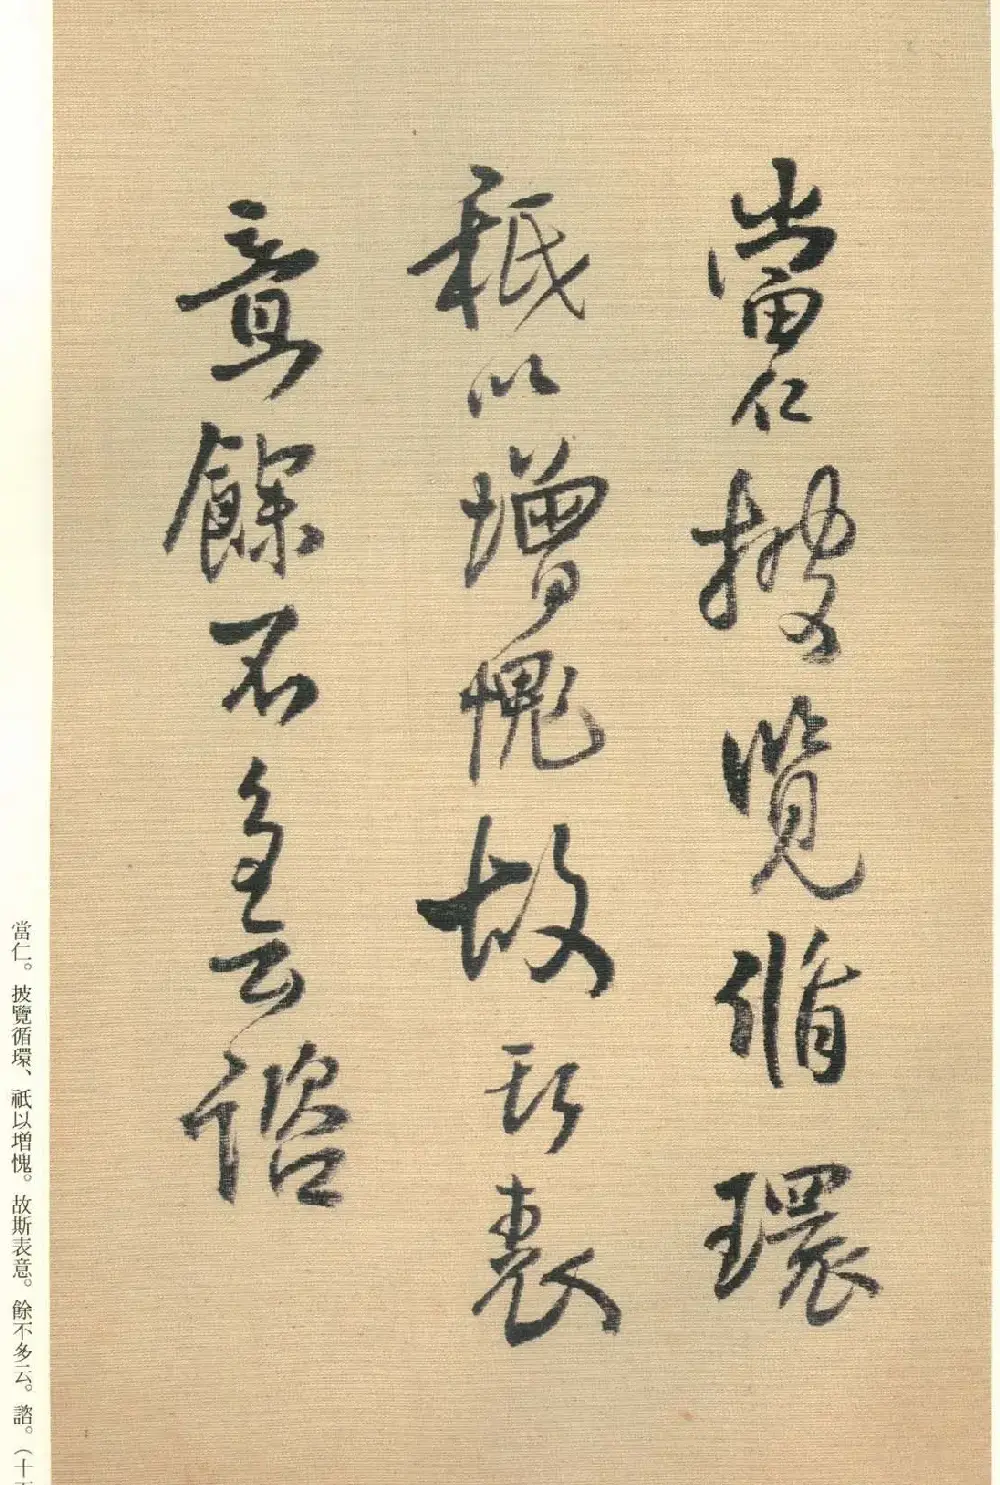 當仁披覽循環
祇以增愧故斯表
意餘不多云諮
當仁。披覽循環、祇以增愧。故斯表意。餘不多云。諮。（十